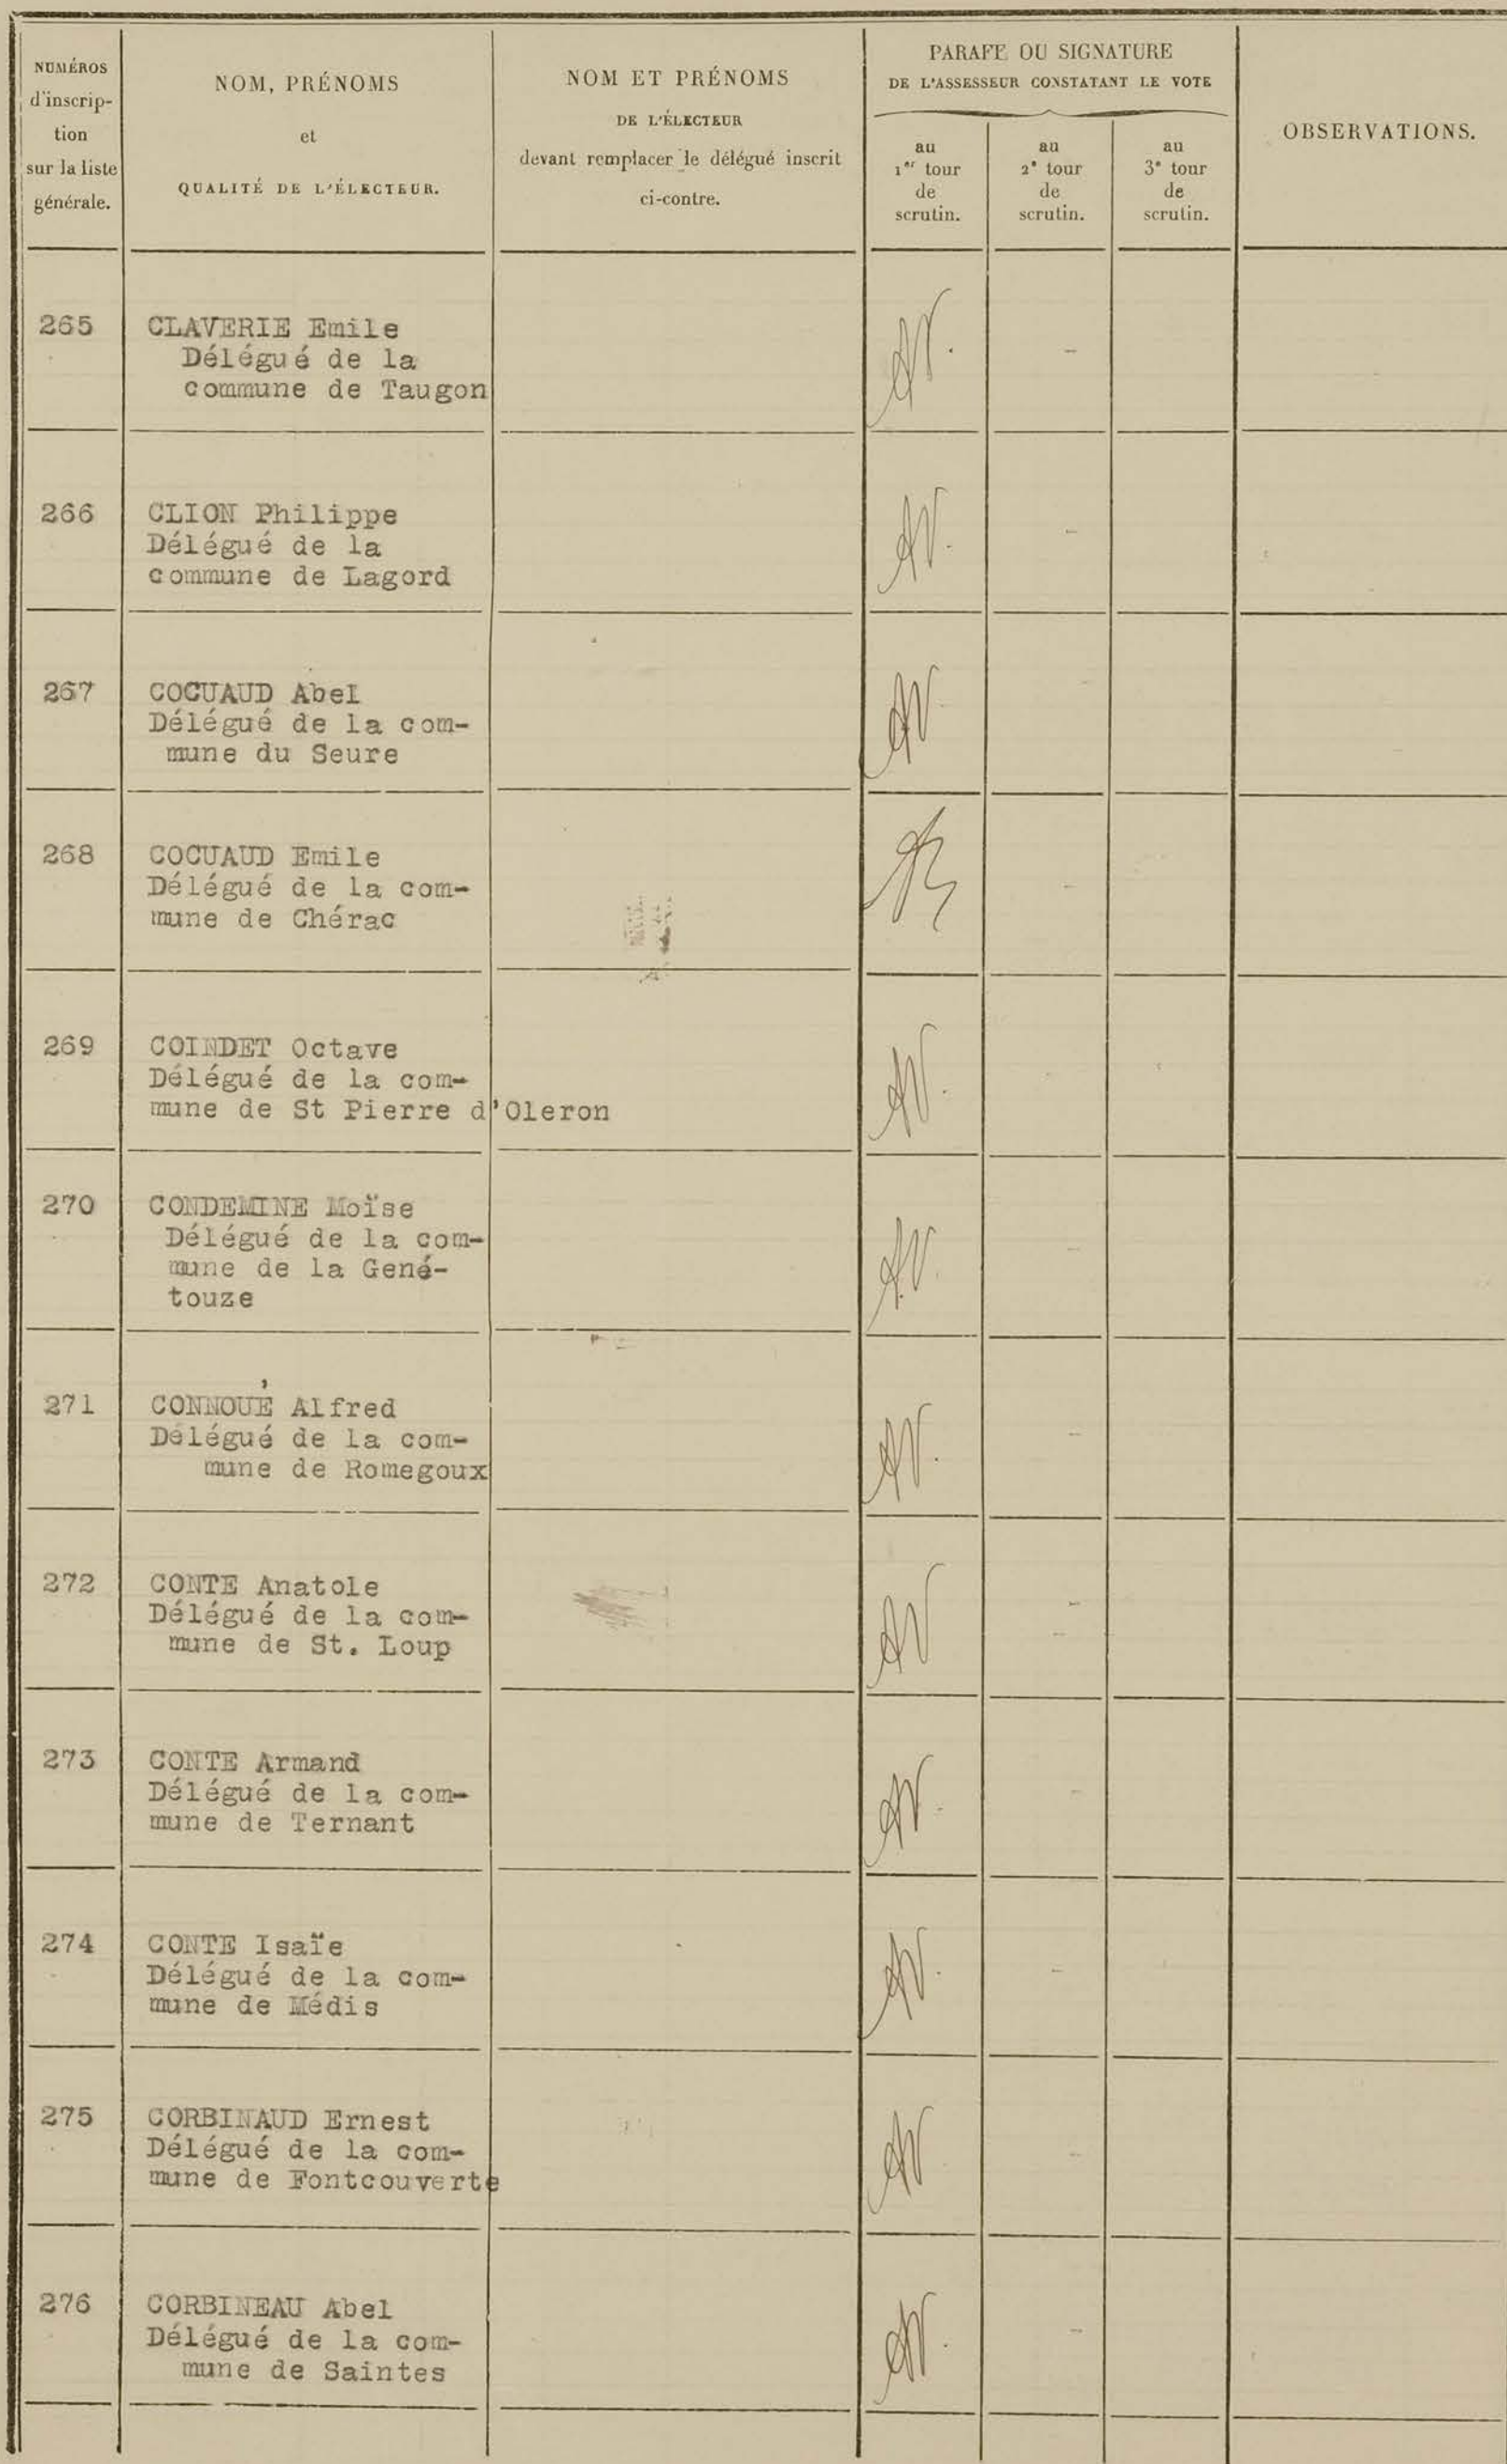 NUMÉROS
d'inscrip-
tion
sur la liste
générale.
NOM, PRÉNOMS
et
QUALITÉ DE L'ÉLECTEUR.
NOM ET PRÉNOMS
DE L'ÉLECTEUR
devant remplacer le délégué inscrit
ci-contre.
PARAFE OU SIGNATURE
DE L'ASSESSEUR CONSTATANT LE VOTE
au
1er tour
de
scrutin.
au
2e tour
de
scrutin.
au
3e tour
de
scrutin.
OBSERVATIONS.
265 CLAVERIE Emile
Délégué de la
commune de Taugon
266 CLION Philippe
Délégué de la
commune de Lagord
267 COCUAUD Abel
Délégué de la com-
mune du Seure
268 COCUAUD Emile
Délégué de la com-
mune de Chérac
269 COINDET Octave
Délégué de la com-
mune de St Pierre d'Oleron
270 CONDEMINE Moïse
Délégué de la com-
mune de la Gené-
touze
271 CONNOUÉ Alfred
Délégué de la com-
mune de Romegoux
272 CONTE Anatole
Délégué de la com-
mune de St. Loup
273 CONTE Armand
Délégué de la com-
mune de Ternant
274 CONTE Isaïe
Délégué de la com-
mune de Médis
275 CORBINAUD Ernest
Délégué de la com-
mune de Fontcouverte
276 CORBINEAU Abel
Délégué de la com-
mune de Saintes